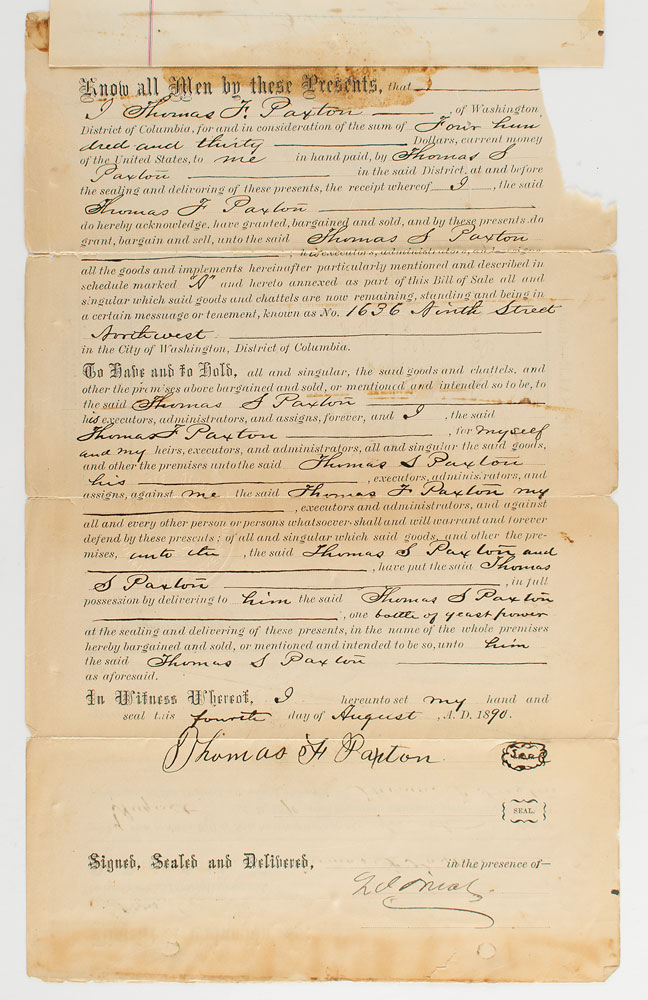 Know all Men by these Presents, that
I Thomas F. Paxton, of Washington
District of Columbia, for and in consideration of the sum of Four hun
dred and thirty Dollars, current money
of the United States, to me in hand paid, by Thomas S
Paxton in the said District, at and before
the sealing and delivering of these presents, the receipt whereof I, the said
Thomas F Paxton
do hereby acknowledge, have granted, bargained and sold, and by these presents do
grant, bargain and sell, unto the said Thomas S Paxton
, his executors, administrators, and
all the goods and implements hereinafter particularly mentioned and described in
schedule marked "A" and hereto annexed as part of this Bill of Sale all and
singular which said goods and chattels are now remaining, standing and being in
a certain messuage or tenement, known as No. 1636 Ninth Street
Northwest
in the City of Washington, District of Columbia.
To Have and to Hold, all and singular, the said goods and chattels, and
other the premises above bargained and sold, or mentioned and intended so to be, to
the said Thomas S Paxton
his executors, administrators, and assigns, forever, and I, the said
Thomas F Paxton, for myself
and my heirs, executors, and administrators, all and singular the said goods,
and other the premises unto the said Thomas S Paxton
his, executors, administrators, and
assigns, against me the said Thomas F Paxton my
, executors and administrators, and against
all and every other person or persons whatsoever shall and will warrant and forever
defend by these presents; of all and singular which said goods, and other the pre-
mises, unto the, the said Thomas S Paxton and
, have put the said Thomas
S Paxton, in full
possession by delivering to him the said Thomas S Paxton
, one bottle of yeast power
at the sealing and delivering of these presents, in the name of the whole premises
hereby bargained and sold, or mentioned and intended to be so, unto him
the said Thomas S Paxton
as aforesaid.
In Witness Whereof, I hereunto set my hand and
seal this fourth day of August, A. D. 1890.
Thomas F Paxton Seal
SEAL.
Signed, Sealed and Delivered, in the presence of—